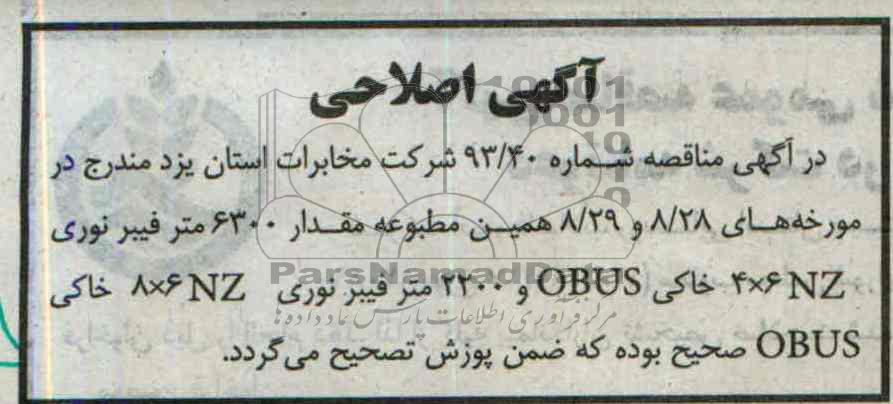 آگهی اصلاحی
در آگهی مناقصه شماره ۹۳/۴۰ شرکت مخابرات استان یزد مندرج در
مورخه‌های ۸/۲۸ و ۸/۲۹ همین مطبوعه مقدار ۶۳۰۰ متر فیبر نوری
۴×۶ NZ خاکی OBUS و ۲۲۰۰ متر فیبر نوری ۸×۶ NZ خاکی
OBUS صحیح بوده که ضمن پوزش تصحیح می‌گردد.
ParsNamadData
مرکز فرآوری اطلاعات پارس نماد داده ها